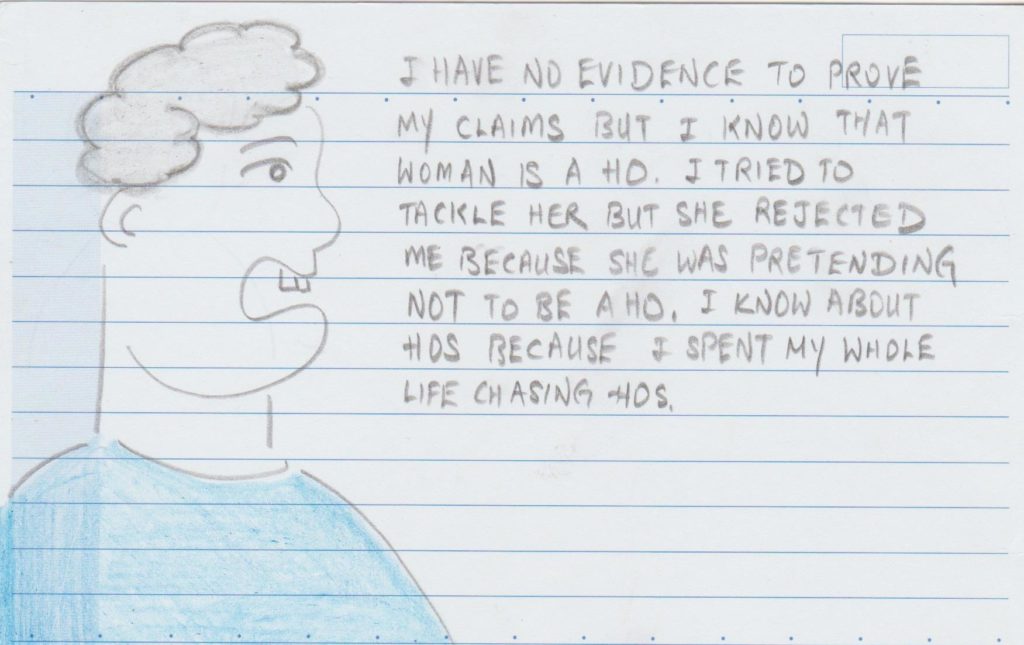 I HAVE NO EVIDENCE TO PROVE
MY CLAIMS BUT I KNOW THAT
WOMAN IS A HO. I TRIED TO
TACKLE HER BUT SHE REJECTED
ME BECAUSE SHE WAS PRETENDING
NOT TO BE A HO. I KNOW ABOUT
HOS BECAUSE I SPENT MY WHOLE
LIFE CHASING HOS.